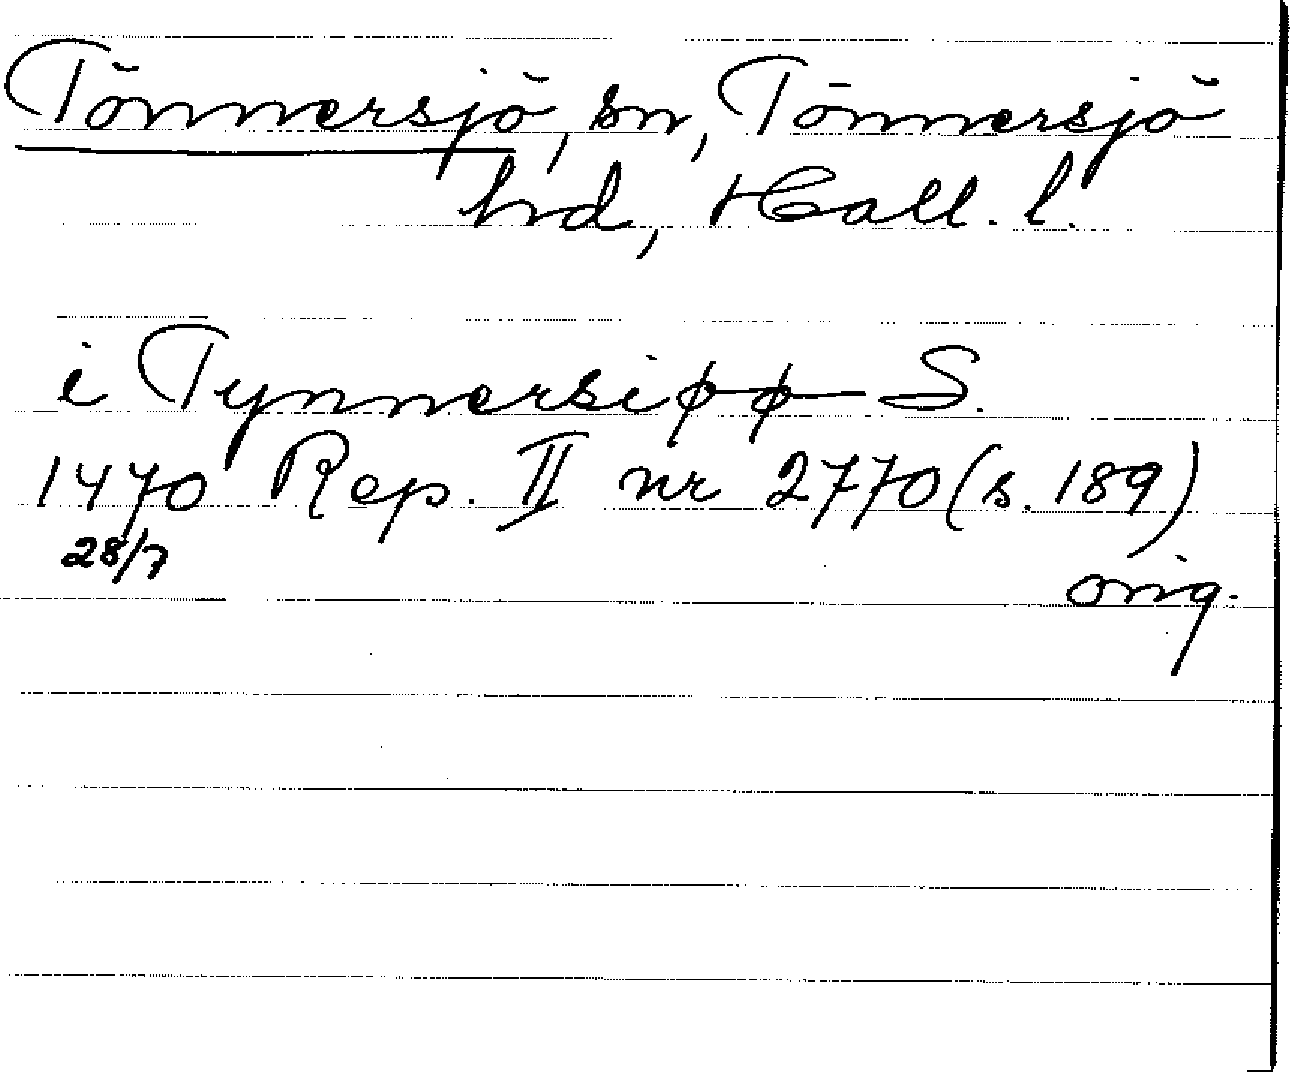 Tönnersjö, sn, Tönnersjö
hd, Hall. l.
i Tynnersiøø S.
1470 Rep. II nr 2770 (s. 189)
28/7
orig.